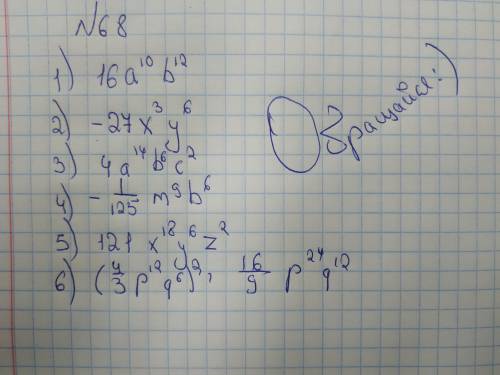 №68
1) 16a¹⁰b¹²
2) -27x³y⁶
3) 4a¹⁴b⁶c²
4) -1/125 m⁹b⁶
5) 121x¹⁸y⁶z²
6) (4/3 p¹²q⁶)², 16/9 p²⁴q¹²
Обращайся:)